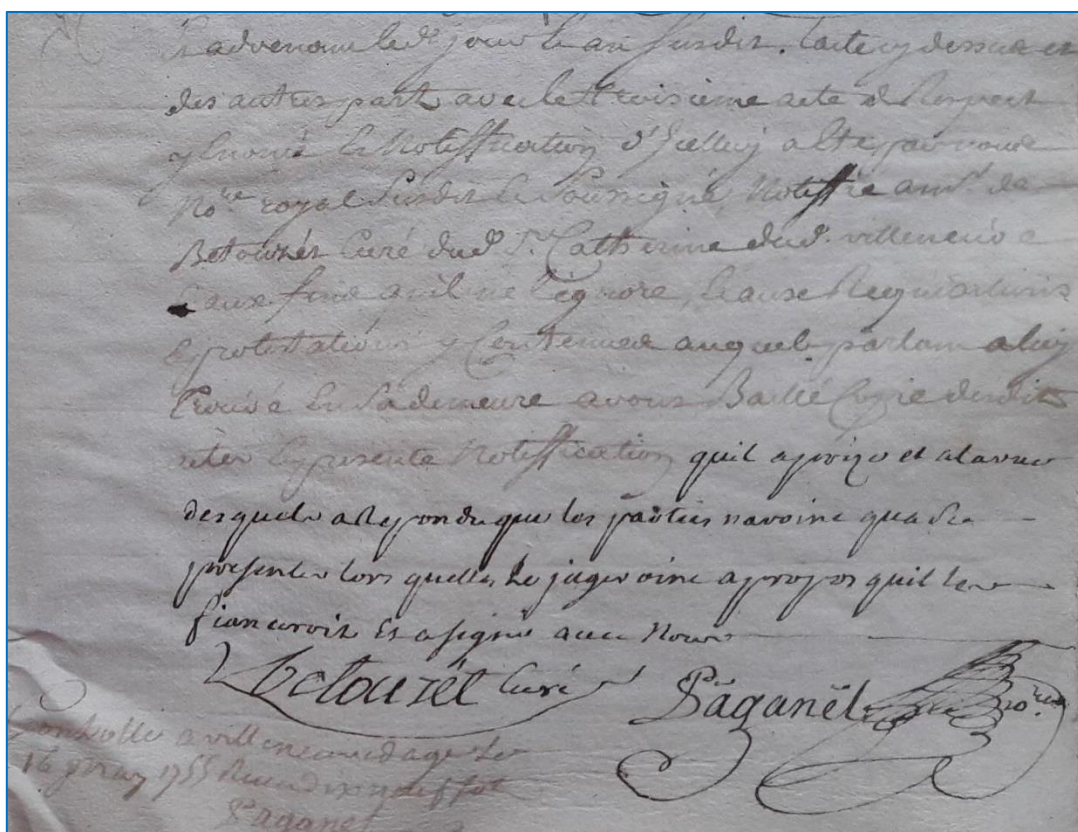 Et advenant led. jour et an susdit, lacte cy dessus et
des autres part avec le troisieme acte de Respect
y enoncé et Notiffication d'Icelluy a esté par nous
No.re royal susdit et soussigné Notiffié au s.r de
Betouzét Curé dud. S.te Catherine dud. villeneuve
aux fins quil ne lignore, et aux Requisitions
et protestations y Contenues auquel parlant a luy
trouvé en sa demeure avons Baillé Copie desdits
actes et presente Notiffication quil a prize et
desquels a Repondu que les parties navoint qua se
presenter lors quelles le jugeroint a propos quil les
fianceroit Et a signé avec Nous
Betouzét Curé Paganél no.re
Controllé a villeneuve dagen le
16 1755 Receu dix neuf sols
Paganel